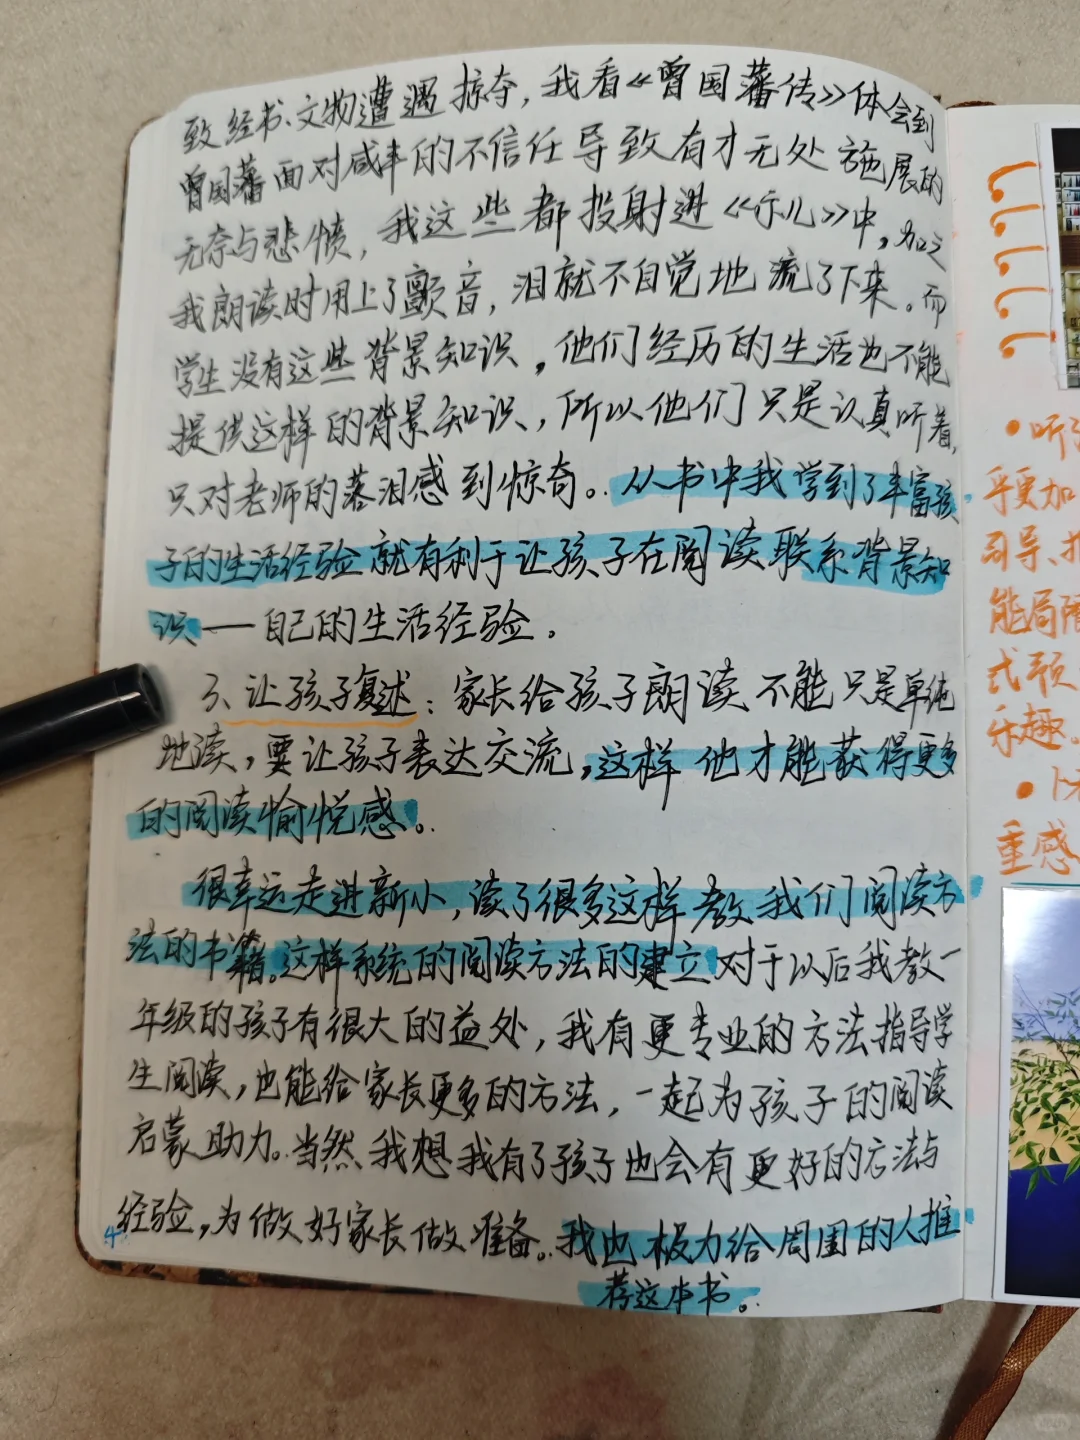 致经书、文物遭遇掠夺，我看《曾国藩传》体会到
曾国藩面对咸丰的不信任导致有才无处施展的
无奈与悲愤，我这些都投射进《乐儿》中，加之
我朗读时用上了颤音，泪就不自觉地流了下来。而
学生没有这些背景知识，他们经历的生活也不能
提供这样的背景知识，所以他们只是认真听着，
只对老师的落泪感到惊奇。从书中我学到了丰富孩
子的生活经验就有利于让孩子在阅读联系背景知
识——自己的生活经验。
3、让孩子复述：家长给孩子朗读不能只是单纯
地读，要让孩子表达交流，这样他才能获得更多
的阅读愉悦感。
很幸运走进新小，读了很多这样教我们阅读方
法的书籍。这样系统的阅读方法的建立对于以后我教一
年级的孩子有很大的益处，我有更专业的方法指导学
生阅读，也能给家长更多的方法，一起为孩子的阅读
启蒙助力。当然我想我有了孩子也会有更好的方法与
经验，为做好家长做准备。我也极力给周围的人推
荐这本书。
4
• 听
乎更加
导、
能局限
式
乐趣。
•
重感